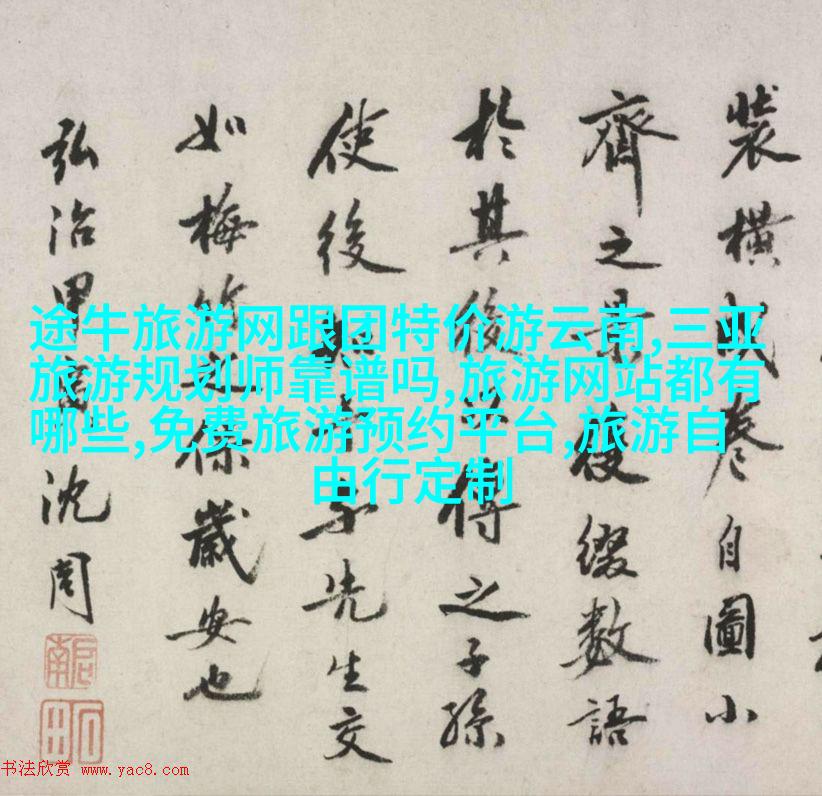 裝橫成卷自圖小
齊之景綴數語
於其後之子孫
使後先生交
如梅竹保歲安也
弘治甲寅沈周
啓南
途牛旅游网跟团特价游云南,三亚
旅游规划师靠谱吗,旅游网站都有
哪些,免费旅游预约平台,旅游自
由行定制
书法欣赏 www.yac8.com